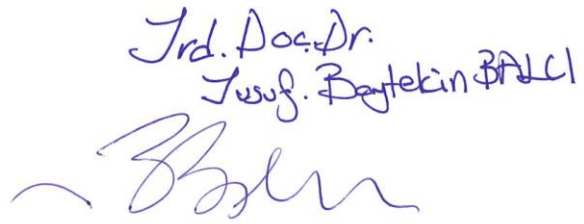 Yrd. Doç. Dr.
Yusuf. Baytekin BALCI